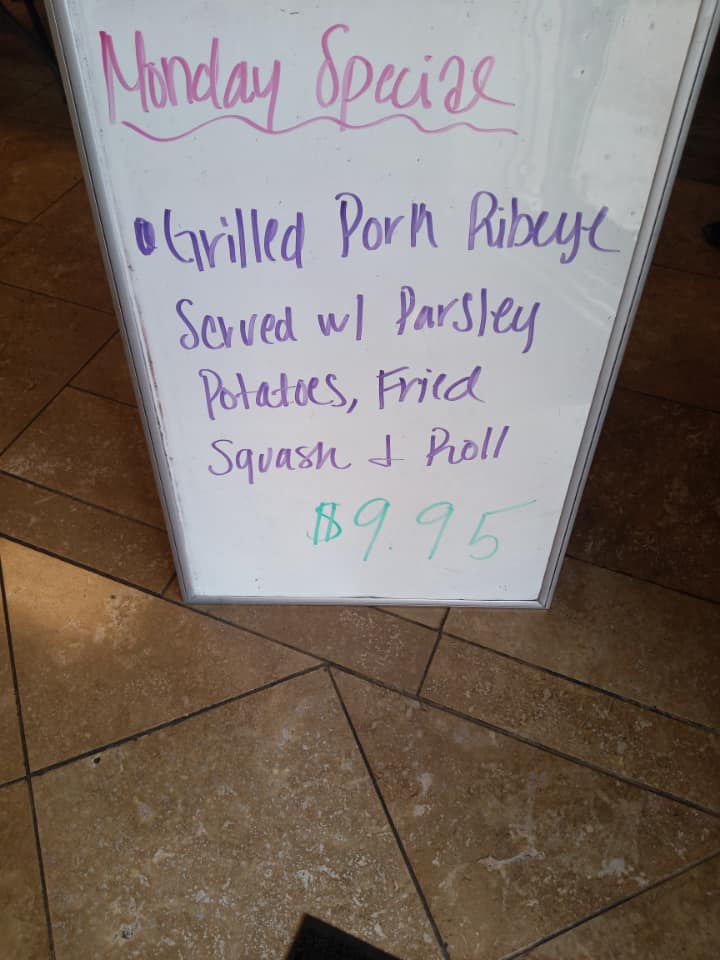 Monday Special
• Grilled Pork Ribeye
Served w/ Parsley
Potatoes, Fried
Squash & Roll
$9.95